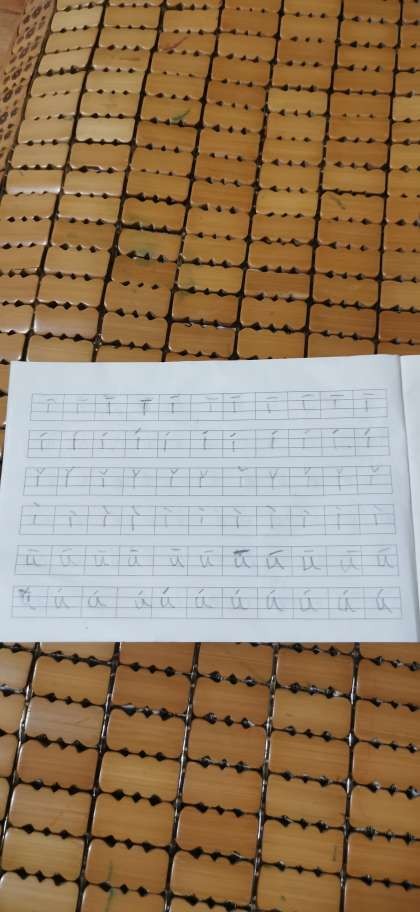 ī ī ī ī ī ī ī ī ī ī ī
í í í í í í í í í í í
ǐ ǐ ǐ ǐ ǐ ǐ ǐ ǐ ǐ ǐ ǐ
ì ì ì ì ì ì ì ì ì ì ì
ū ū ū ū ū ū ū ū ū ū ū
ú ú ú ú ú ú ú ú ú ú